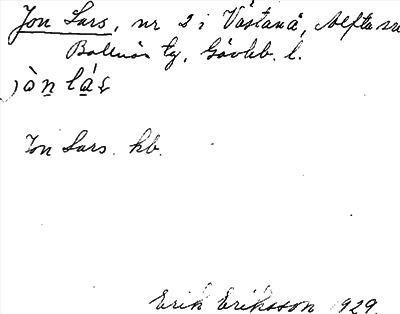 Jon Lars, nr 2 i Västanå, Alfta sn
Bollnäs tg, Gävleb. l.
Jon Lars. kb.
Erik Eriksson 1929.